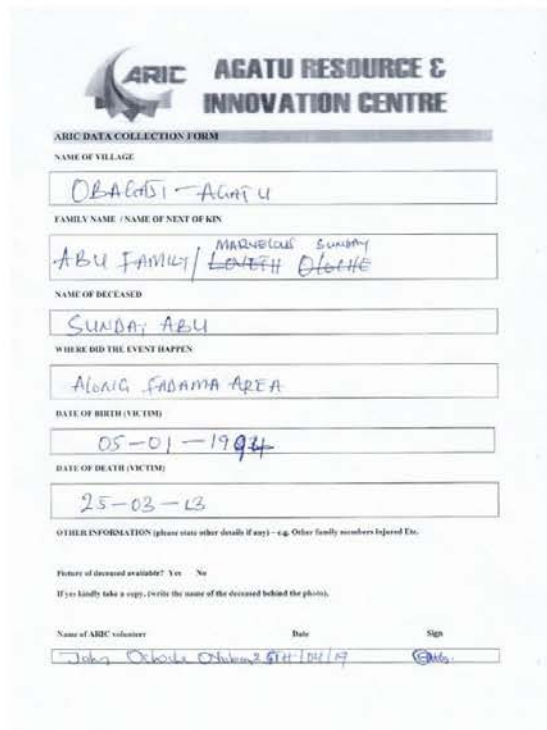 ARIC AGATU RESOURCE &
INNOVATION CENTRE
ARIC DATA COLLECTION FORM
NAME OF VILLAGE
OBAGAJI - AGATU
FAMILY NAME / NAME OF NEXT OF KIN
MARVELOUS SUNDAY
ABU FAMILY/
NAME OF DECEASED
SUNDAY ABU
WHERE DID THE EVENT HAPPEN
ALONG FADAMA AREA
DATE OF BIRTH (VICTIM)
05-01-1994
DATE OF DEATH (VICTIM)
25-03-13
OTHER INFORMATION (please state other details if any) – e.g. Other family members Injured Etc.
Picture of deceased available? Yes No
If yes kindly take a copy. (write the name of the deceased behind the photo).
Name of ARIC volunteer Date Sign
John